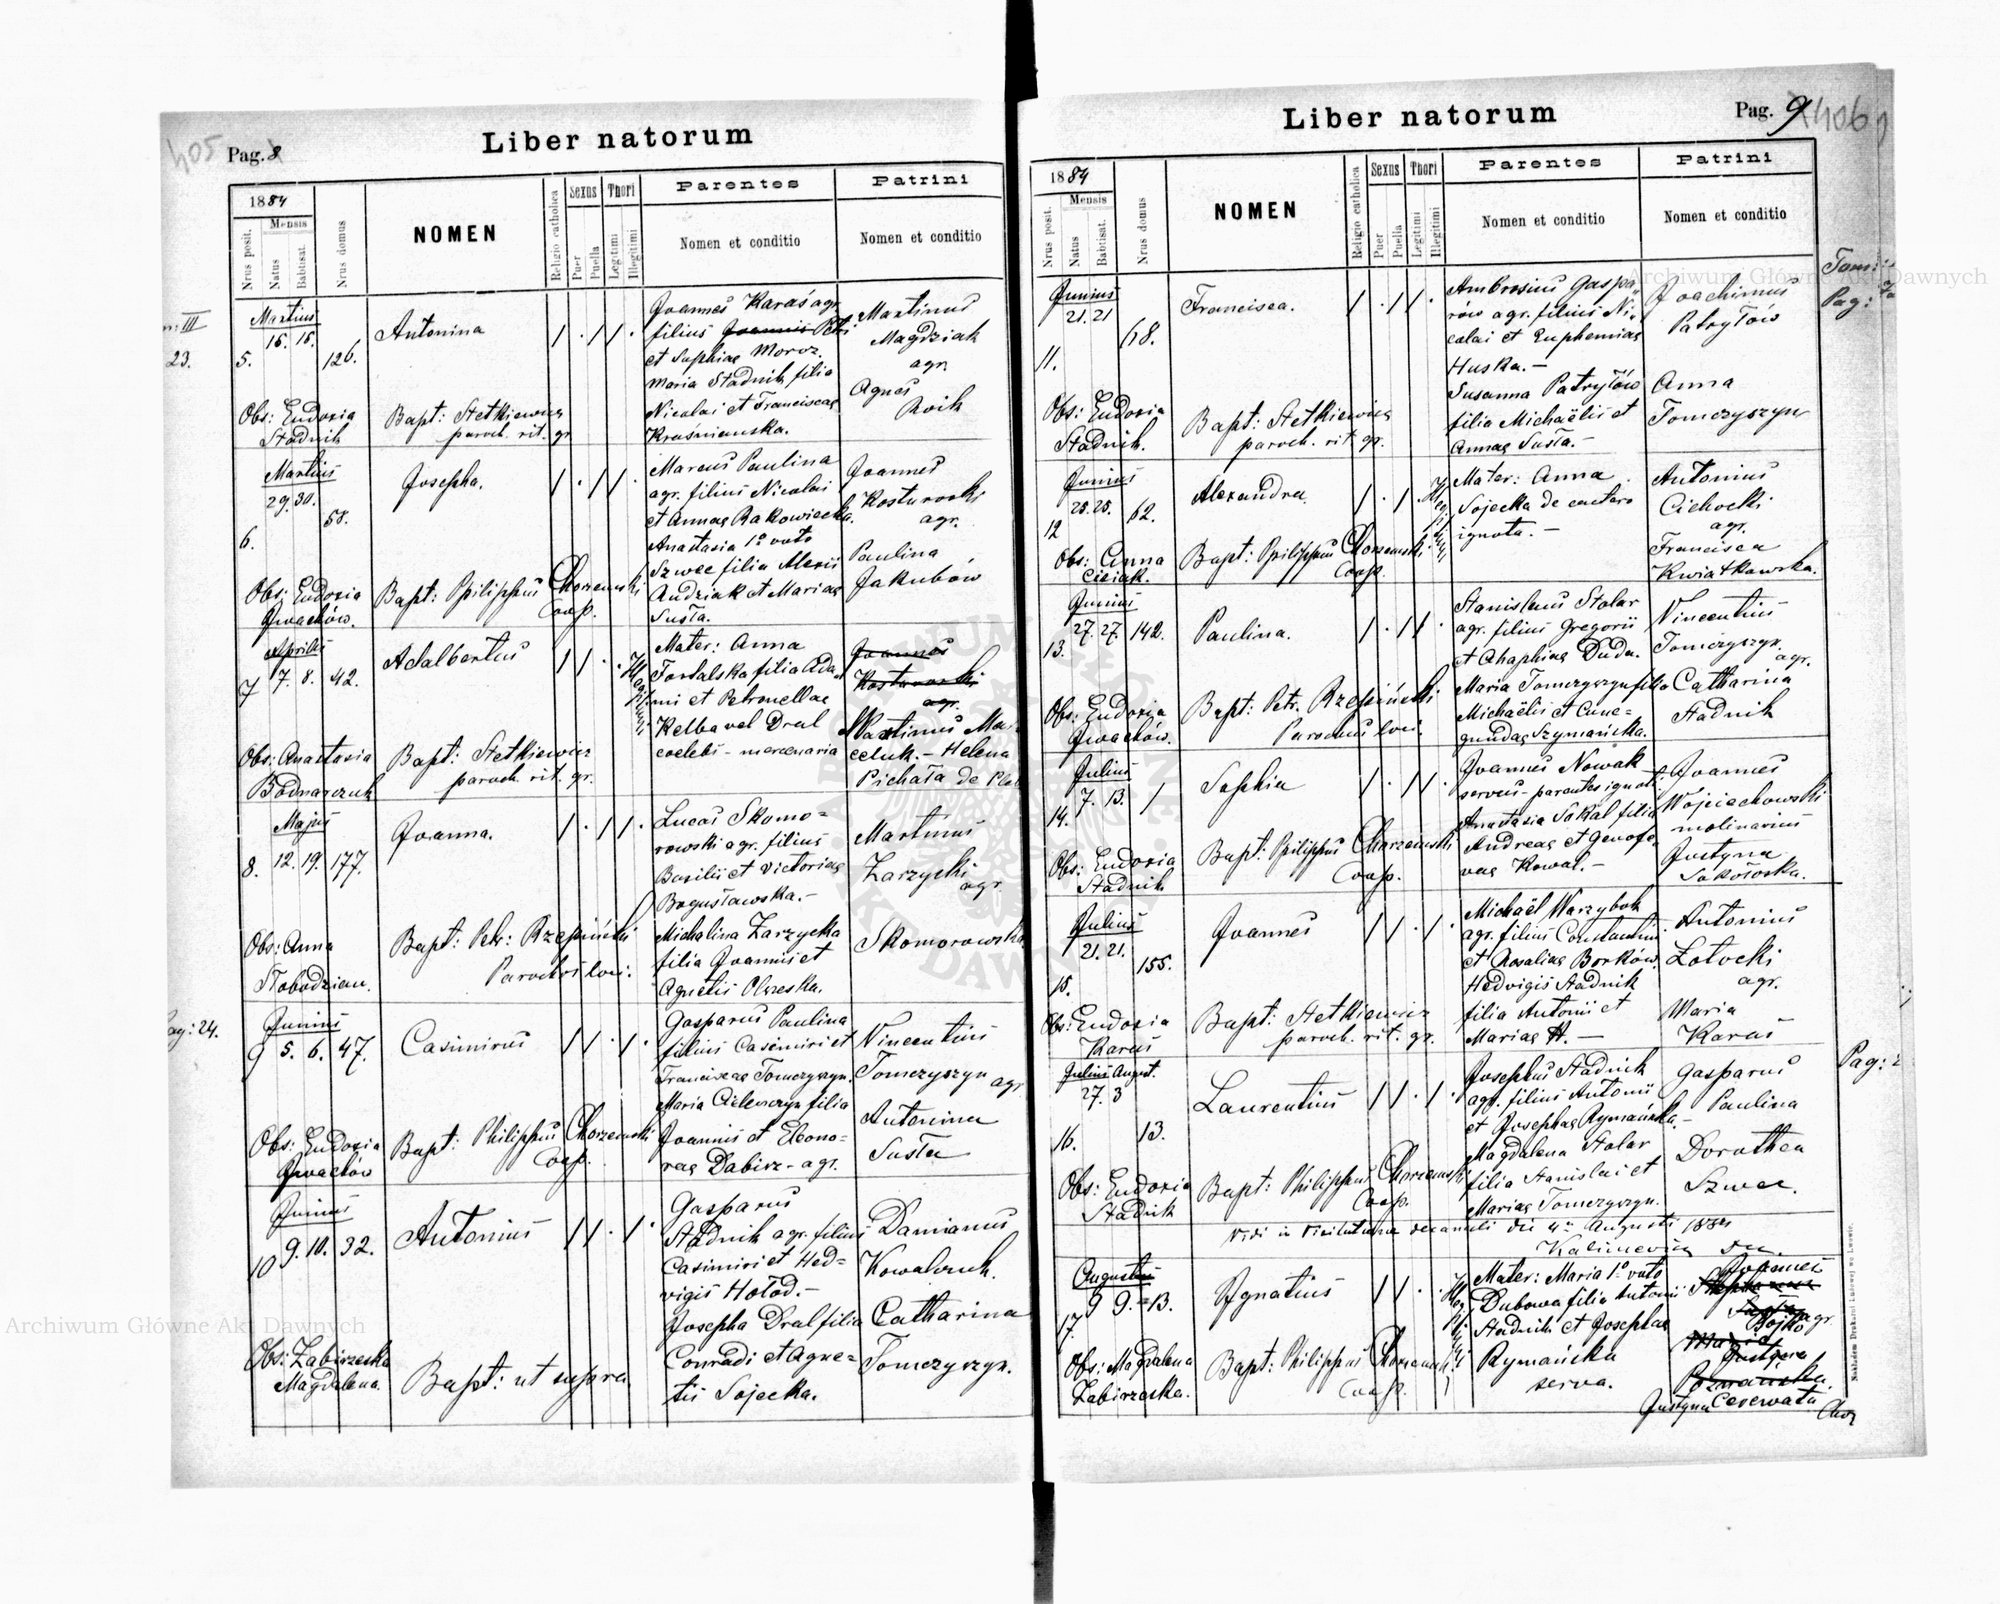 405 Pag. 8
Liber natorum
1884
Mensis
Nrus posit.
Natus
Babtisat.
Nrus domus
NOMEN
Religio catholica
Sexus
Puer
Puella
Thori
Legitimi
Illegitimi
Parentes
Nomen et conditio
Patrini
Nomen et conditio
III
23.
Martius
15. 15.
5.
126.
Antonina
Joannes Karaś agr.
filius Joannis Petri
et Sophiae Moroz.
Maria Stadnik filia
Nicolai et Franciscae
Kraśnianska.
Martinus
Magdziak
agr.
Agnes
Roik
Obs: Eudoxia
Stadnik
Bapt: Stetkiewicz
paroch. rit. gr.
Martius
29. 30.
58.
6.
Josepha.
Marcus Paulina
agr. filius Nicolai
et Annae Rakowiecka.
Anastasia 1º voto
Szwec filia Alexii
Andziak et Mariae
Susta.
Joannes
Kosturocki
agr.
Paulina
Jakubów
Obs: Eudoxia
Gwachów.
Bapt: Philippus Chorzemski
Coop.
Aprilis
7 7. 8. 42.
Adalbertus
Mater: Anna
Tortalska filia Ada=
mi et Petronellae
Kelba vel Dral
coelebs - mercenaria
Joannes
Kosturocki
agr.
Martinus Ma=
celuk. - Helena
Pichata de
Obs: Anastasia
Bodnarczuk
Bapt: Stetkiewicz
paroch. rit. gr.
Majus
8. 12. 19. 177.
Joanna.
Lucas Skomo=
rowski agr. filius
Basilii et Victoriae
Bogusławska.-
Michalina Zarzycka
filia Joannis et
Agnetis Olszeska.
Martinus
Zarzycki
agr.
Skomorowska
Obs: Anna
Słobodzian.
Bapt: Petr: Rzepiński
Parochus loci.
Pag: 24.
Junius
9 5. 6. 47.
Casimirus
Gasparus Paulina
filius Casimiri et
Franciscae Tomczyszyn.
Maria Cielewczyn filia
Joannis et Eleono=
rae Dabisz - agr.
Vincentius
Tomczyszyn agr
Antonina
Susta
Obs: Eudoxia
Gwachów
Bapt: Philippus Chorzemski
Coop.
Junius
10 9. 10. 32.
Antonius
Gasparus
Stadnik agr. filius
Casimiri et Hed=
vigis Hołod.-
Josepha Dral filia
Conradi et Agne=
tis Sojecka.
Damianus
Kowalczuk.
Catharina
Tomczyszyn.
Obs: Zabirzeska
Magdalena.
Bapt: ut supra
Liber natorum
Pag. 9 406
1884
Mensis
Nrus posit.
Natus
Babtisat.
Nrus domus
NOMEN
Religio catholica
Sexus
Puer
Puella
Thori
Legitimi
Illegitimi
Parentes
Nomen et conditio
Patrini
Nomen et conditio
Tom:
Pag:
Junius
21. 21
68.
11.
Francisca.
Ambrosius Gaspa=
rów agr. filius Ni=
colai et Euphemiae
Huska.-
Susanna Patryłów
filia Michaëlis et
Annae Susta.-
Joachimus
Patryłów
Anna
Tomczyszyn
Obs: Eudoxia
Stadnik.
Bapt: Stetkiewicz
paroch. rit. gr.
Junius
25. 25. 62.
12
Alexandra
Mater: Anna
Sojecka de caetero
ignota.-
Antonius
Cichocki
agr.
Francisca
Kwiatkowska.
Obs: Anna
Bapt: Philippus Chorzemski.
Coop.
Junius
27. 27. 142.
13.
Paulina.
Stanislaus Stolar
agr. filius Gregorii
et Ahaphiae Duda.
Maria Tomczyszyn filia
Michaëlis et Cune=
gundae Szymańska.
Vincentius
Tomczyszyn.
agr.
Catharina
Stadnik
Obs: Eudoxia
Gwachów.
Bapt: Petr. Rzepiński
Parochus loci.
Julius
7. 13. 1
14.
Sophia
Joannes Nowak
servus - parentes ignoti.
Anastasia Sokal filia
Andreae et Genofe=
vae Kowal.-
Joannes
Wojciechowski
molinarius
Justyna
Sokołoska.
Obs: Eudoxia
Stadnik
Bapt: Philippus Chorzemski
Coop.
Julius
21. 21.
155.
15.
Joannes
Michaël Warzybok
agr. filius Constantini
et Rosaliae Borków.
Hedvigis Stadnik
filia Antonii et
Mariae H. -
Antonius
Łotocki
agr.
Maria
Karaś
Obs: Eudoxia
Karaś
Bapt: Stetkiewicz
paroch. rit. gr.
Pag:
Julius August.
27. 3
13.
16.
Laurentius
Josephus Stadnik
agr. filius Antonii
et Josephae Rymańska.-
Magdalena Stolar
filia Stanislai et
Mariae Tomczyszyn.
Gasparus
Paulina
Dorothea
Szwec.
Obs: Eudoxia
Stadnik
Bapt: Philippus Chorzemski
Coop.
Vidi in Visitatione decanali die 4a Augusti 1884
Kalimevicz
Augustus
9 9.=13.
17.
Ignatius
Mater: Maria 1º voto
Dubowa filia Antonii
Stadnik et Josephae
Rymańska
serva.
Joannes
Bojko agr.
Maria
Justyna
Justyna Cerewata
Obs: Magdalena
Zabirzeska.
Bapt: Philippus Chorzemski
Coop.
Nakładem Drukarni Ludowej we Lwowie.
Archiwum Główne Akt Dawnych
Archiwum Główne Akt Dawnych